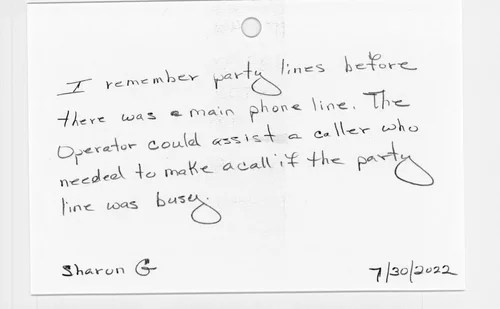 I remember party lines before
there was a main phone line. The
Operator could assist a caller who
needed to make a call if the party
line was busy.
Sharon G
7/30/2022